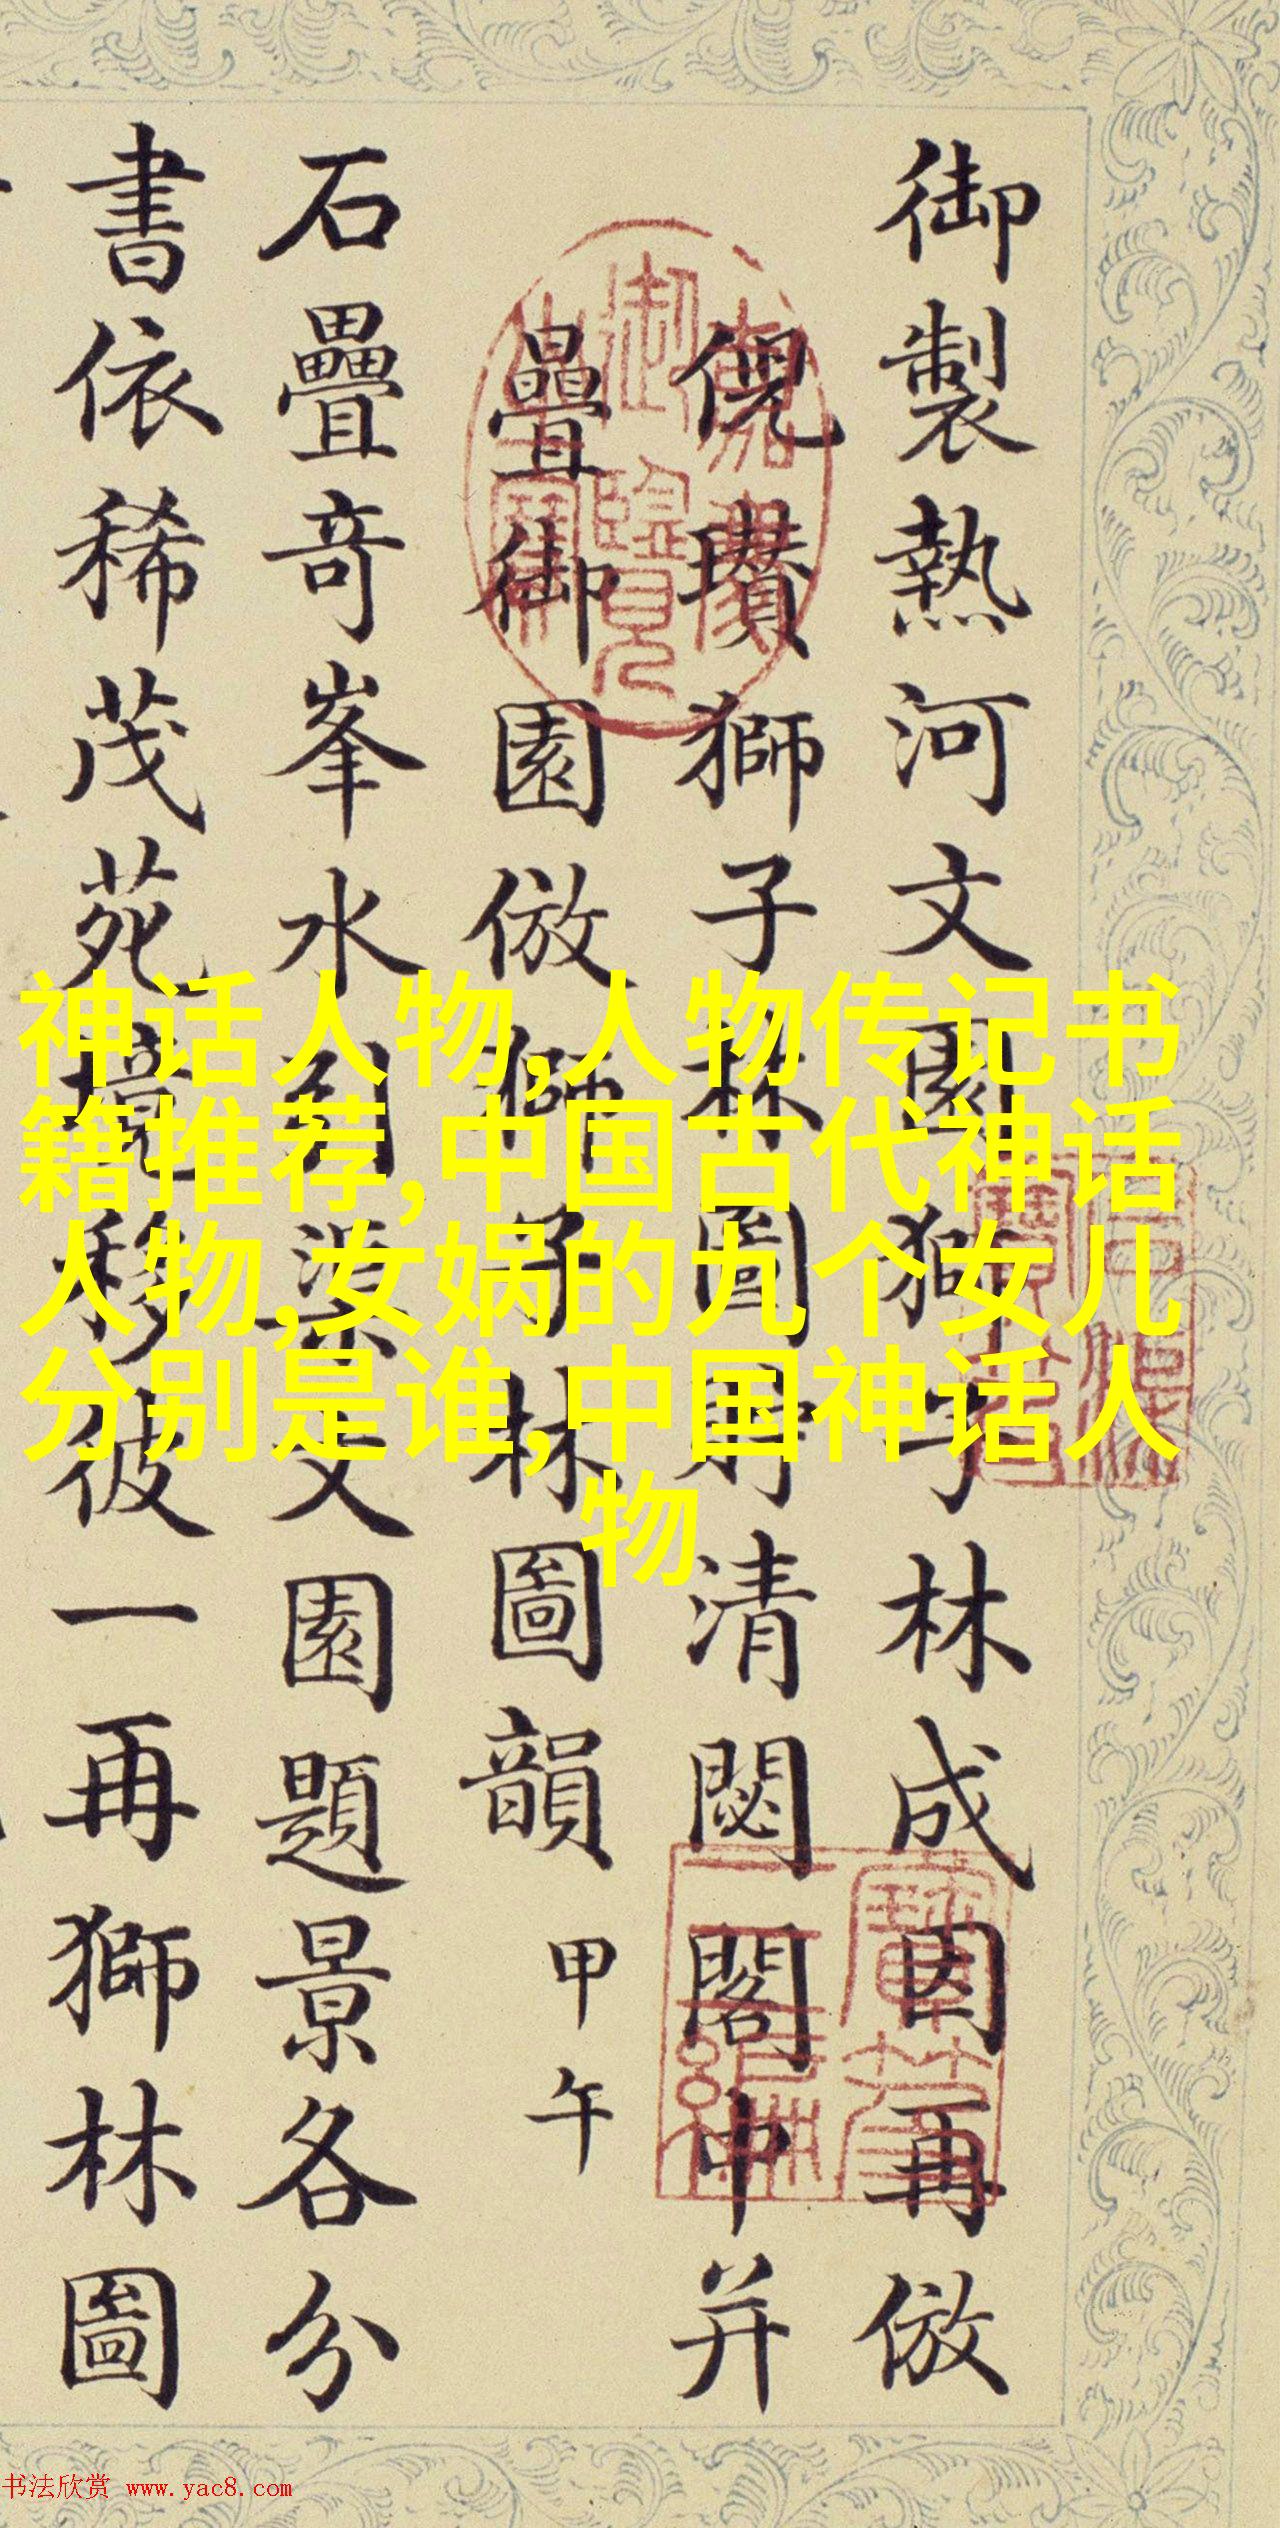 御製熱河文園獅子林成因再倣
倪瓚獅子林圖財清閟閣中并
疊御園倣獅子林圖韻甲午
石疊奇峯水列渠文園題景各分
書依稀茂苑境移彼一再獅林圖
神话人物,人物传记书
籍推荐,中国古代神话
人物,女娲的九个女儿
分别是谁,中国神话人
物
书法欣赏 www.yac8.com